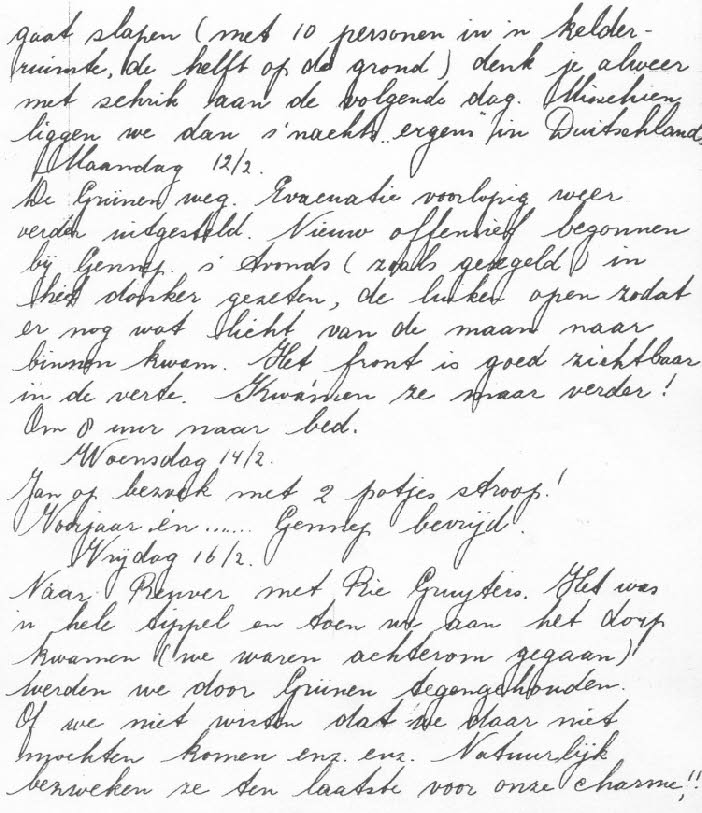 gaat slapen (met 10 personen in 'n kelder-
ruimte, de helft op de grond) denk je alweer
met schrik aan de volgende dag. Misschien
liggen we dan s'nachts ergens in Duitschland.
Maandag 12/2.
De Grünen weg. Evacuatie voorlopig weer
verder uitgesteld. Nieuw offensief begonnen
bij Gennep. s' Avonds (zoals geregeld) in
het donker gezeten, de luiken open zodat
er nog wat licht van de maan naar
binnen kwam. Het front is goed zichtbaar
in de verte. Kwámen ze maar verder!
Om 8 uur naar bed.
Woensdag 14/2.
Jan op bezoek met 2 potjes stroop!
Voorjaar én ...... Gennep bevrijd.
Vrijdag 16/2.
Naar Reuver met Rie Gruyters. Het was
'n hele tippel en toen we aan het dorp
kwamen (we waren achterom gegaan)
werden we door Grünen tegengehouden.
Of we niet wisten dat we daar niet
mochten komen enz. enz. Natuurlijk
bezweken ze ten laatste voor onze charme,!!